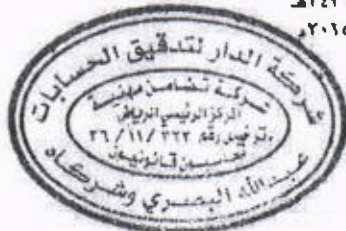 ١٤٣ هـ
٢٠١٥ م
شركة الدار لتدقيق الحسابات
شركة تضامن مهنية
المركز الرئيسي الرياض
ترخيص رقم ٣٢٣ /١١/ ٣٦
محاسبين قانونيون
عبدالله البصري وشركاه